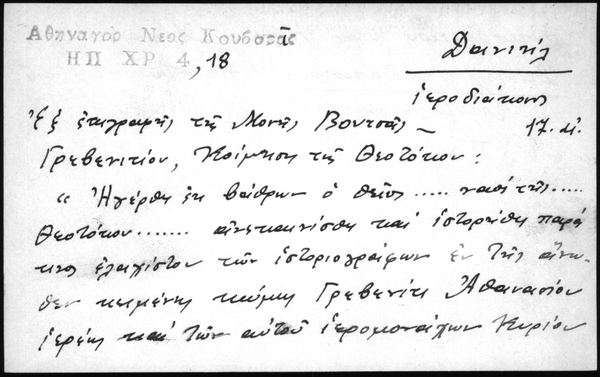 Ἀθηναγόρ Νέος Κουβαρᾶς
ΗΠ ΧΡ 4, 18
Δανιήλ
ἱεροδιάκονος
Ἐξ ἐπιγραφῆς τῆς Μονῆς Βουτσᾶς – 17. αἰ.
Γρεβενιτίου, Κοίμηση τῆς Θεοτόκου:
"Ἠγέρθη ἐκ βάθρων ὁ θεῖος ..... ναός τῆς .....
Θεοτόκου ....... ἀνεκαινίσθη καί ἱστορήθη παρά
τῶν ἱστοριογράφων ἐν τῆς ἄνω-
θεν κειμένης κώμης Γρεβενίτι Ἀθανασίου
ἱερέως καί τῶν αὐτοῦ ἱερομονάχων Κυρίου